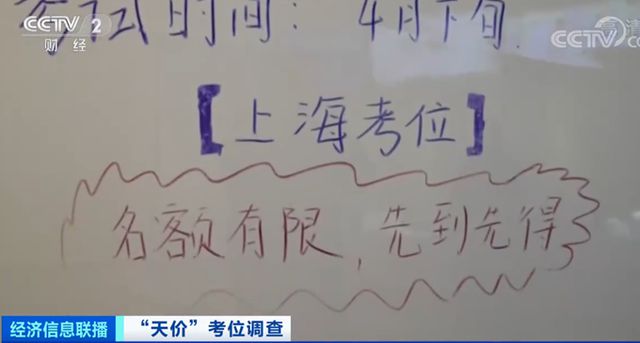 CCTV 2
财经
CCTV
考试时间：4月下旬
【上海考位】
名额有限，先到先得
经济信息联播
“天价”考位调查